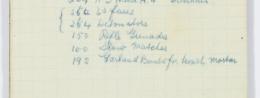 264 Fuses
264 Detonators
150 Rifle Grenades
100 Slow Matches
192 Bombs for Trench Mortar